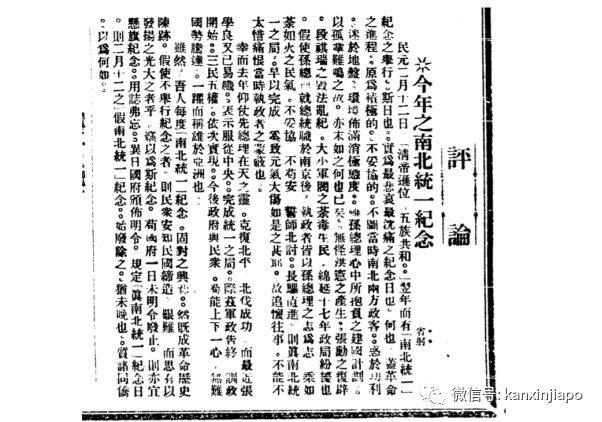 評論
※今年之南北統一紀念
省躬
民元二月十二日「清帝遜位、五族共和」。翌年而有「南北統一」
紀念之舉行。斯日也。實爲最悲哀最沈痛之紀念日也。何也。蓋革命
之進程。原爲積極的。不妥協的。不圖當時南北兩方政客。惑於功利
。迷於地盤。環境佈滿消極態度。雖孫總理心中所抱負之建國計劃。
以孤掌難鳴之故。亦末如之何也已矣。無怪洪憲之產生。張勳之復辟
。段祺瑞之毀法亂紀。大小軍閥之荼毒生民。綿延十七年政局紛擾也
。假使孫總理就總統職於南京後。執政者皆以孫總理之志爲志。乘如
荼如火之民氣。不妥協。不苟安。誓師北討。長驅直進。則眞南北統
一之局。早以完成。奚致元氣大傷如是之甚耶。故追懷往事。不能不
太惜痛恨當時執政者之蒙蔽也。
幸而去年仰仗先總理在天之靈。克復北平。北伐成功。而最近張
學良又已易幟。表示服從中央。完成統一之局。際茲軍政告終。訓政
開始。三民五權。依次實現。今後政府與民衆。苟能上下一心。無難
國勢騰達。一躍而稱雄於亞洲也。
雖然。吾人每度「南北統一」紀念。固對之興悲。然既成革命歷史
陳跡。假使不舉行紀念之者。則民衆安知民國締造之艱難。而思有以
發揚之光大之者乎。竊以爲斯紀念。苟國府一日未明令廢止。則亦宜
懸旗紀念。用誌弗忘。異日國府頒佈明令。規定「眞南北統一」紀念日
。則二月十二之「假南北統一」紀念。始廢除之。猶未晚也。質諸同僑
。以爲何如。
微信号: kanxinjiapo